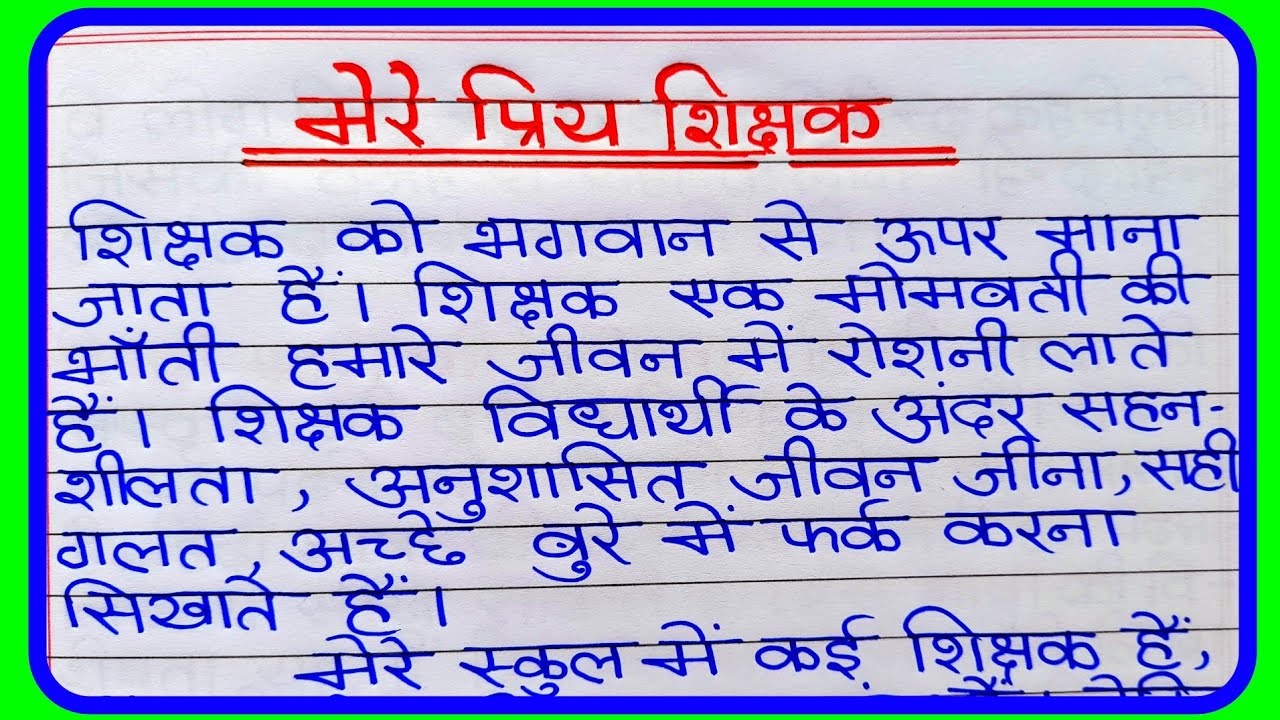 मेरे प्रिय शिक्षक
शिक्षक को भगवान से ऊपर माना
जाता हैं। शिक्षक एक मोमबती की
भाँती हमारे जीवन में रोशनी लाते
हैं। शिक्षक विद्यार्थी के अंदर सहन-
शीलता, अनुशासित जीवन जीना, सही
गलत, अच्छे बुरे में फर्क करना
सिखाते हैं।
मेरे स्कुल में कई शिक्षक हैं,